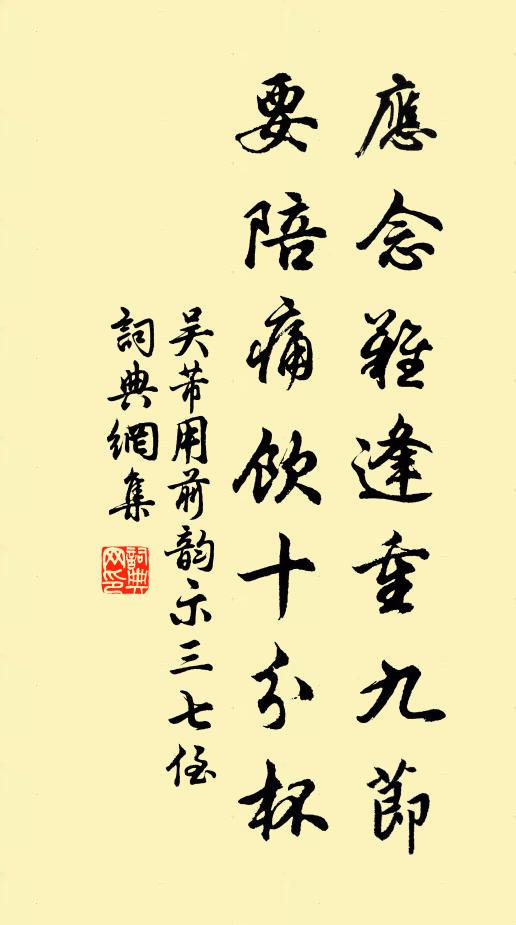 應念難逢重九節
要陪痛飲十分杯
吴芾用前韵示三七侄
詞典網集
詞典網印